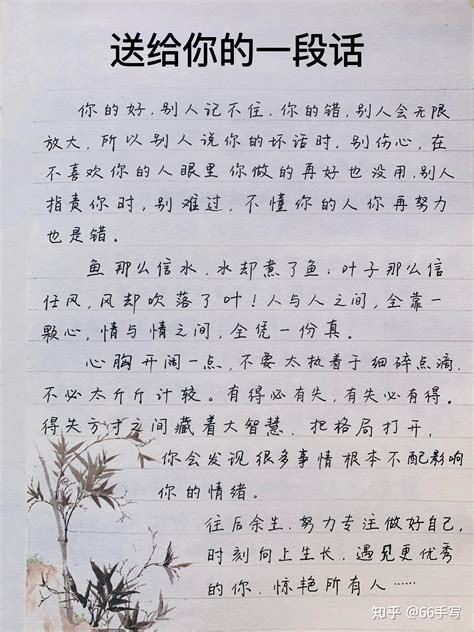 送给你的一段话
你的好,别人记不住,你的错,别人会无限
放大,所以别人说你的坏话时,别伤心,在
不喜欢你的人眼里你做的再好也没用,别人
指责你时,别难过,不懂你的人你再努力
也是错。
鱼那么信水,水却煮了鱼;叶子那么信
任风,风却吹落了叶!人与人之间,全靠一
颗心,情与情之间,全凭一份真。
心胸开阔一点,不要太执着于细碎点滴,
不必太斤斤计较。有得必有失,有失必有得。
得失方寸之间藏着大智慧,把格局打开,
你会发现很多事情根本不配影响
你的情绪。
往后余生,努力专注做好自己,
时刻向上生长,遇见更优秀
的你,惊艳所有人……
知乎 @66手写